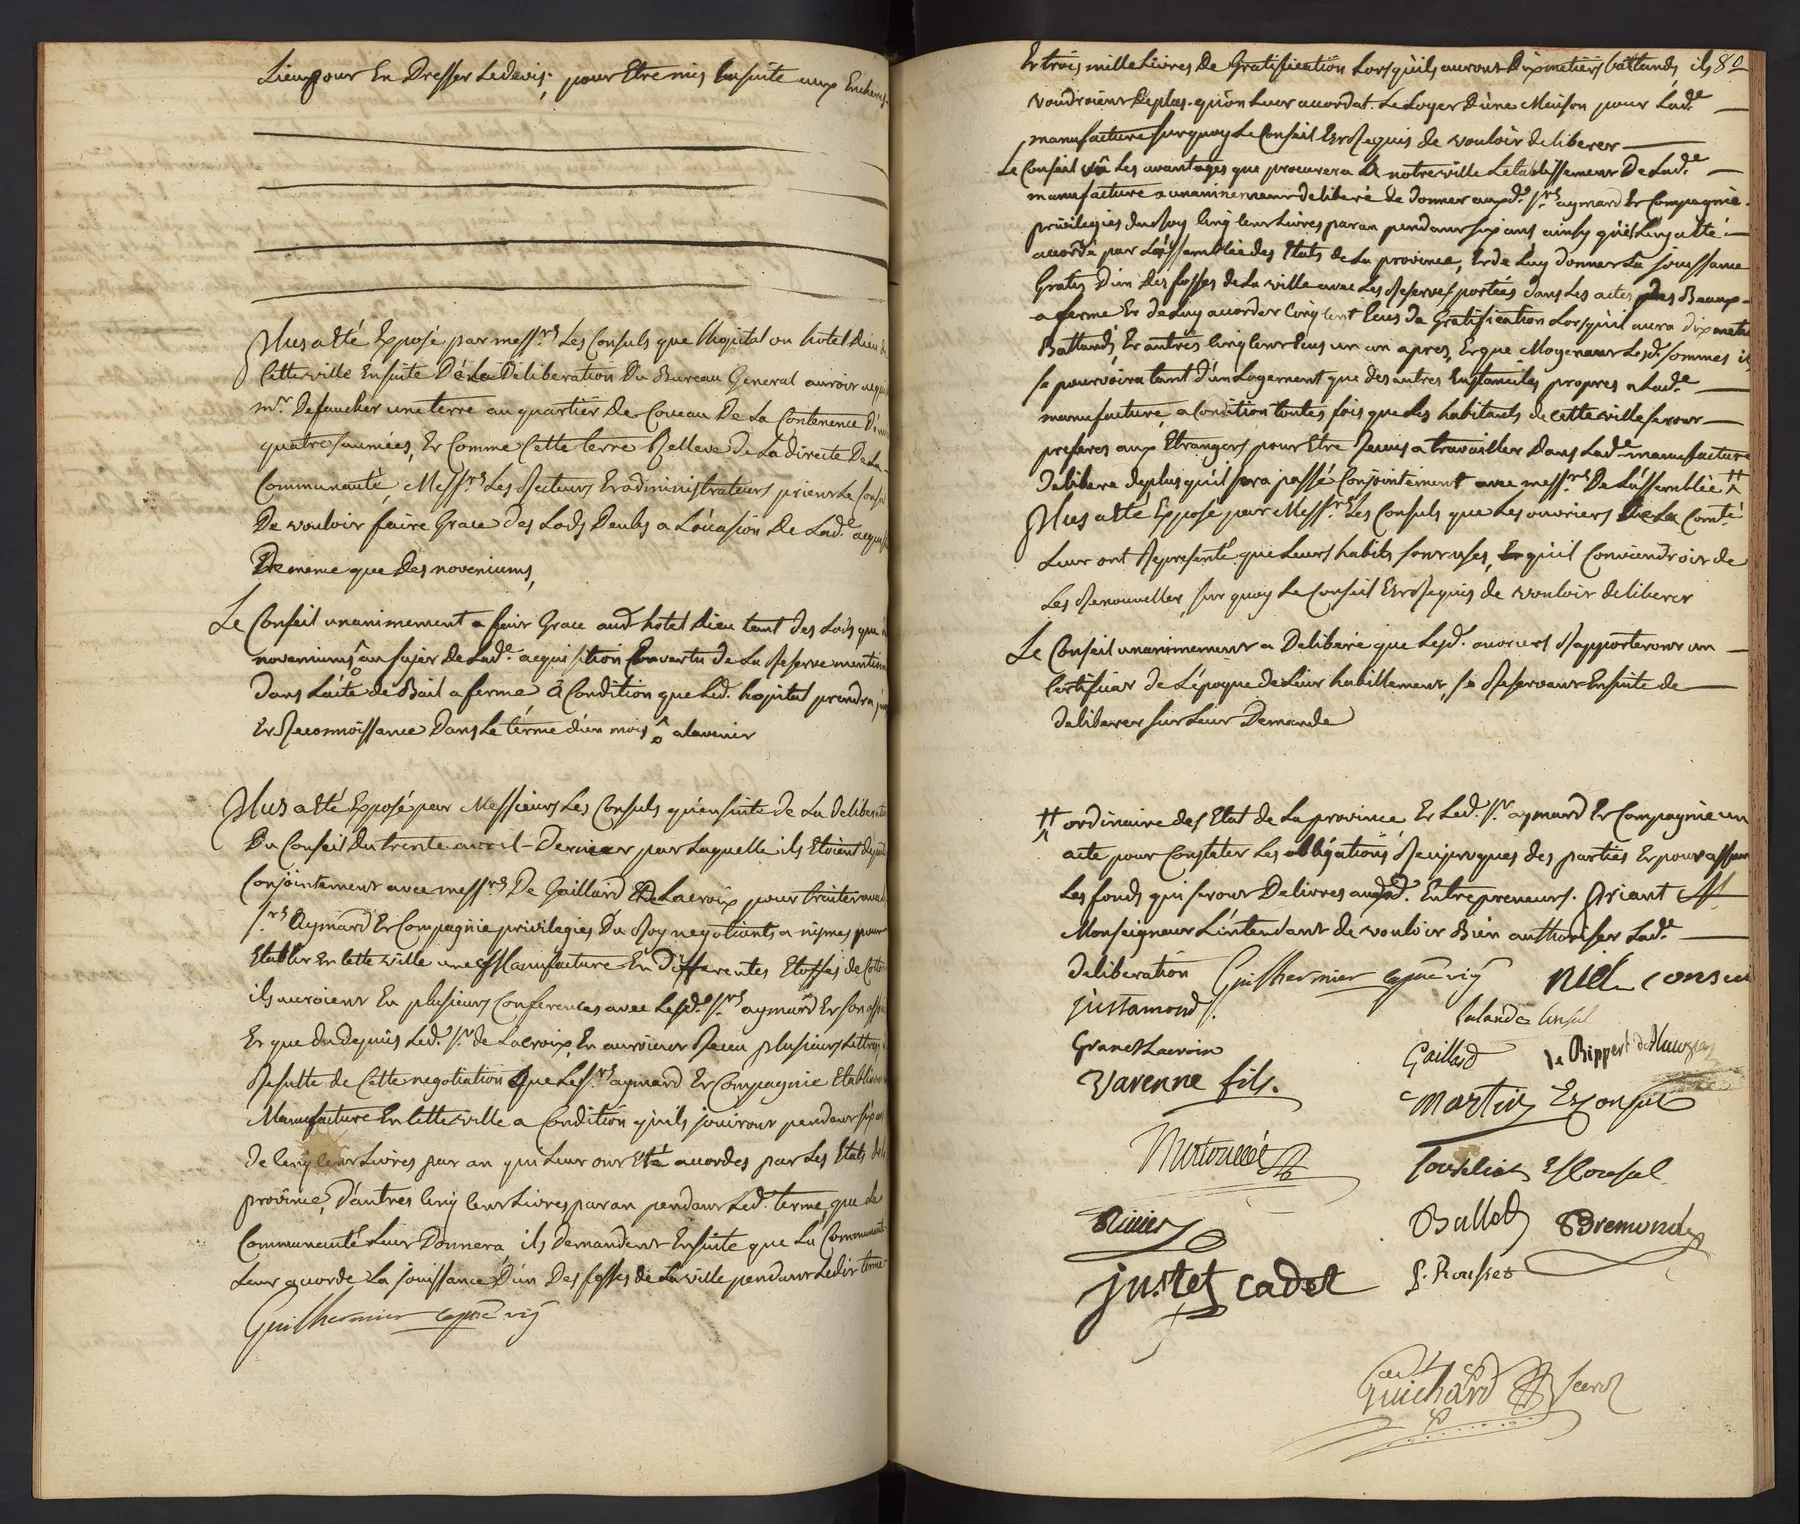 Lieu pour En Dresser Ledevis; pour Etre mis Ensuite aux Encheres
Plus a Eté Exposé par mess.rs Les Consuls que lhopital ou hotel Dieu de
Cette ville Ensuite De La Deliberation Du Bureau General auroit acquis
m.r Defaucher une terre au quartier De Coucau De La Contenence D'en
quatre saumées, Et Comme Cette terre Releve de La directe De La
Communauté, Mess.rs Les Recteurs Et administrateurs prient Le Conseil
De vouloir faire Grace des Lods Deubs a L'ocasion De Lad.e acquis
De meme que Des noveniums,
Le Conseil unanimement a fair Grace aud. hotel Dieu tant des Lods que
noveniums au sujet De Lad.e acquisition En vertu de La Reserve mention
Dans L'acte de Bail a ferme, A Condition que Led. hopital prendra
Et Reconnoissance Dans Le terme d'un mois alavenir
Plus a Eté Exposé par Messieurs Les Consuls qu'ensuite de La deliberation
Du Conseil Du trente avril Dernier par Laquelle ils Etoient deputés
Conjointement avec mess.rs De Gaillard Et de Lacroix pour traiter avec
s.rs Aymard Et Compagnie privilegiés Du Roy negotiants a nimes pour
Etablir En Cette ville une Manufacture En Differentes Etoffes de Cotton
ils auroient En plusieurs Conferences avec Lesd. s.rs aymard Et son associé
Et que du depuis Led. s.r de Lacroix, En auroient Receu plusieurs Lettres
Resulte de Cette negotiation que Les s.rs aymard Et Compagnie Etabliront
Manufacture En Cette ville a Condition qu'ils jouiront pendant six ans
de Cinq Cent Livres par an qui Leur ont Eté acordés par Les Etats de la
province, D'autres Cinq Cent Livres par an pendant Led. terme, que La
Communauté Leur Donnera, ils demandent Ensuite que La Communauté
Leur acorde La jouissance D'un Des fosses de La ville pendant Ledit terme
Guilhermier
Et trois mille Livres De Gratification Lorsquils auront Dix metiers battands, ils 80
voudroient De plus qu'on Leur accordat Le Loyer D'une Maison pour Lad.e
manufacture sur quoy Le Conseil Est Requis de vouloir deliberer
Le Conseil vû Les avantages que procurera a notre ville L'etablissement De Lad.e
manufacture a unanimement deliberé De donner auxd. s.rs aymard Et Compagnie
privilegiés du Roy Cinq Cent Livres par an pendant six ans ainsy qu'il Luy a Eté
accordé par L'assemblée des Etats de La province, Et de Luy donner La jouissance
Gratis D'un Des fosses de La ville avec Les Reserves portées dans Les actes des Beaux
a ferme Et de Luy accorder Cinq Cent Ecus De Gratification Lorsqu'il aura dix metiers
Battands, Et autres Cinq Cent Ecus un an apres, Et que Moyenant Lesd. sommes il
se pourvoira tant d'un Logement que des autres Enstanciles propres a Lad.e
manufacture, a Condition toutes fois que Les habitants de Cette ville seront
preferés aux Etrangers pour Etre Recus a travailler Dans Lad.e manufacture
Delibere de plus qu'il sera passé Conjointement avec mess.rs De L'assemblée ++
Plus a Eté Exposé par Mess.rs Les Consuls que Les ouvriers De La Com.té
Leur ont Representé que Leurs habits sont usés, Et qu'il Conviendroit de
Les Renouveller, sur quoy Le Conseil Est Requis de vouloir deliberer
Le Conseil unanimement a Deliberé que Lesd. ouvriers Rapporteront un
Certificat de L'epoque de Leur habillement, se Reservant Ensuite de
deliberer sur Leur Demande
++ ordinaire des Etat de La province Et Led. s.r aymard Et Compagnie un
acte pour Constater Les obligations Reciproques des parties Et pour assurer
Les fonds qui seront Delivrés auxd. Entrepreneurs. Priant
Monseigneur L'intendant de vouloir Bien authoriser Lad.e
deliberation Guilhermier Niel Consul
justamond Salandes Consul
Granet Lacroix Gaillard Le Rippert de
Varenne fils. Martin Ex Consul
Exconsul
Rivier Ballot Bremond
justet cadet P. Rousset
Guichard Secr